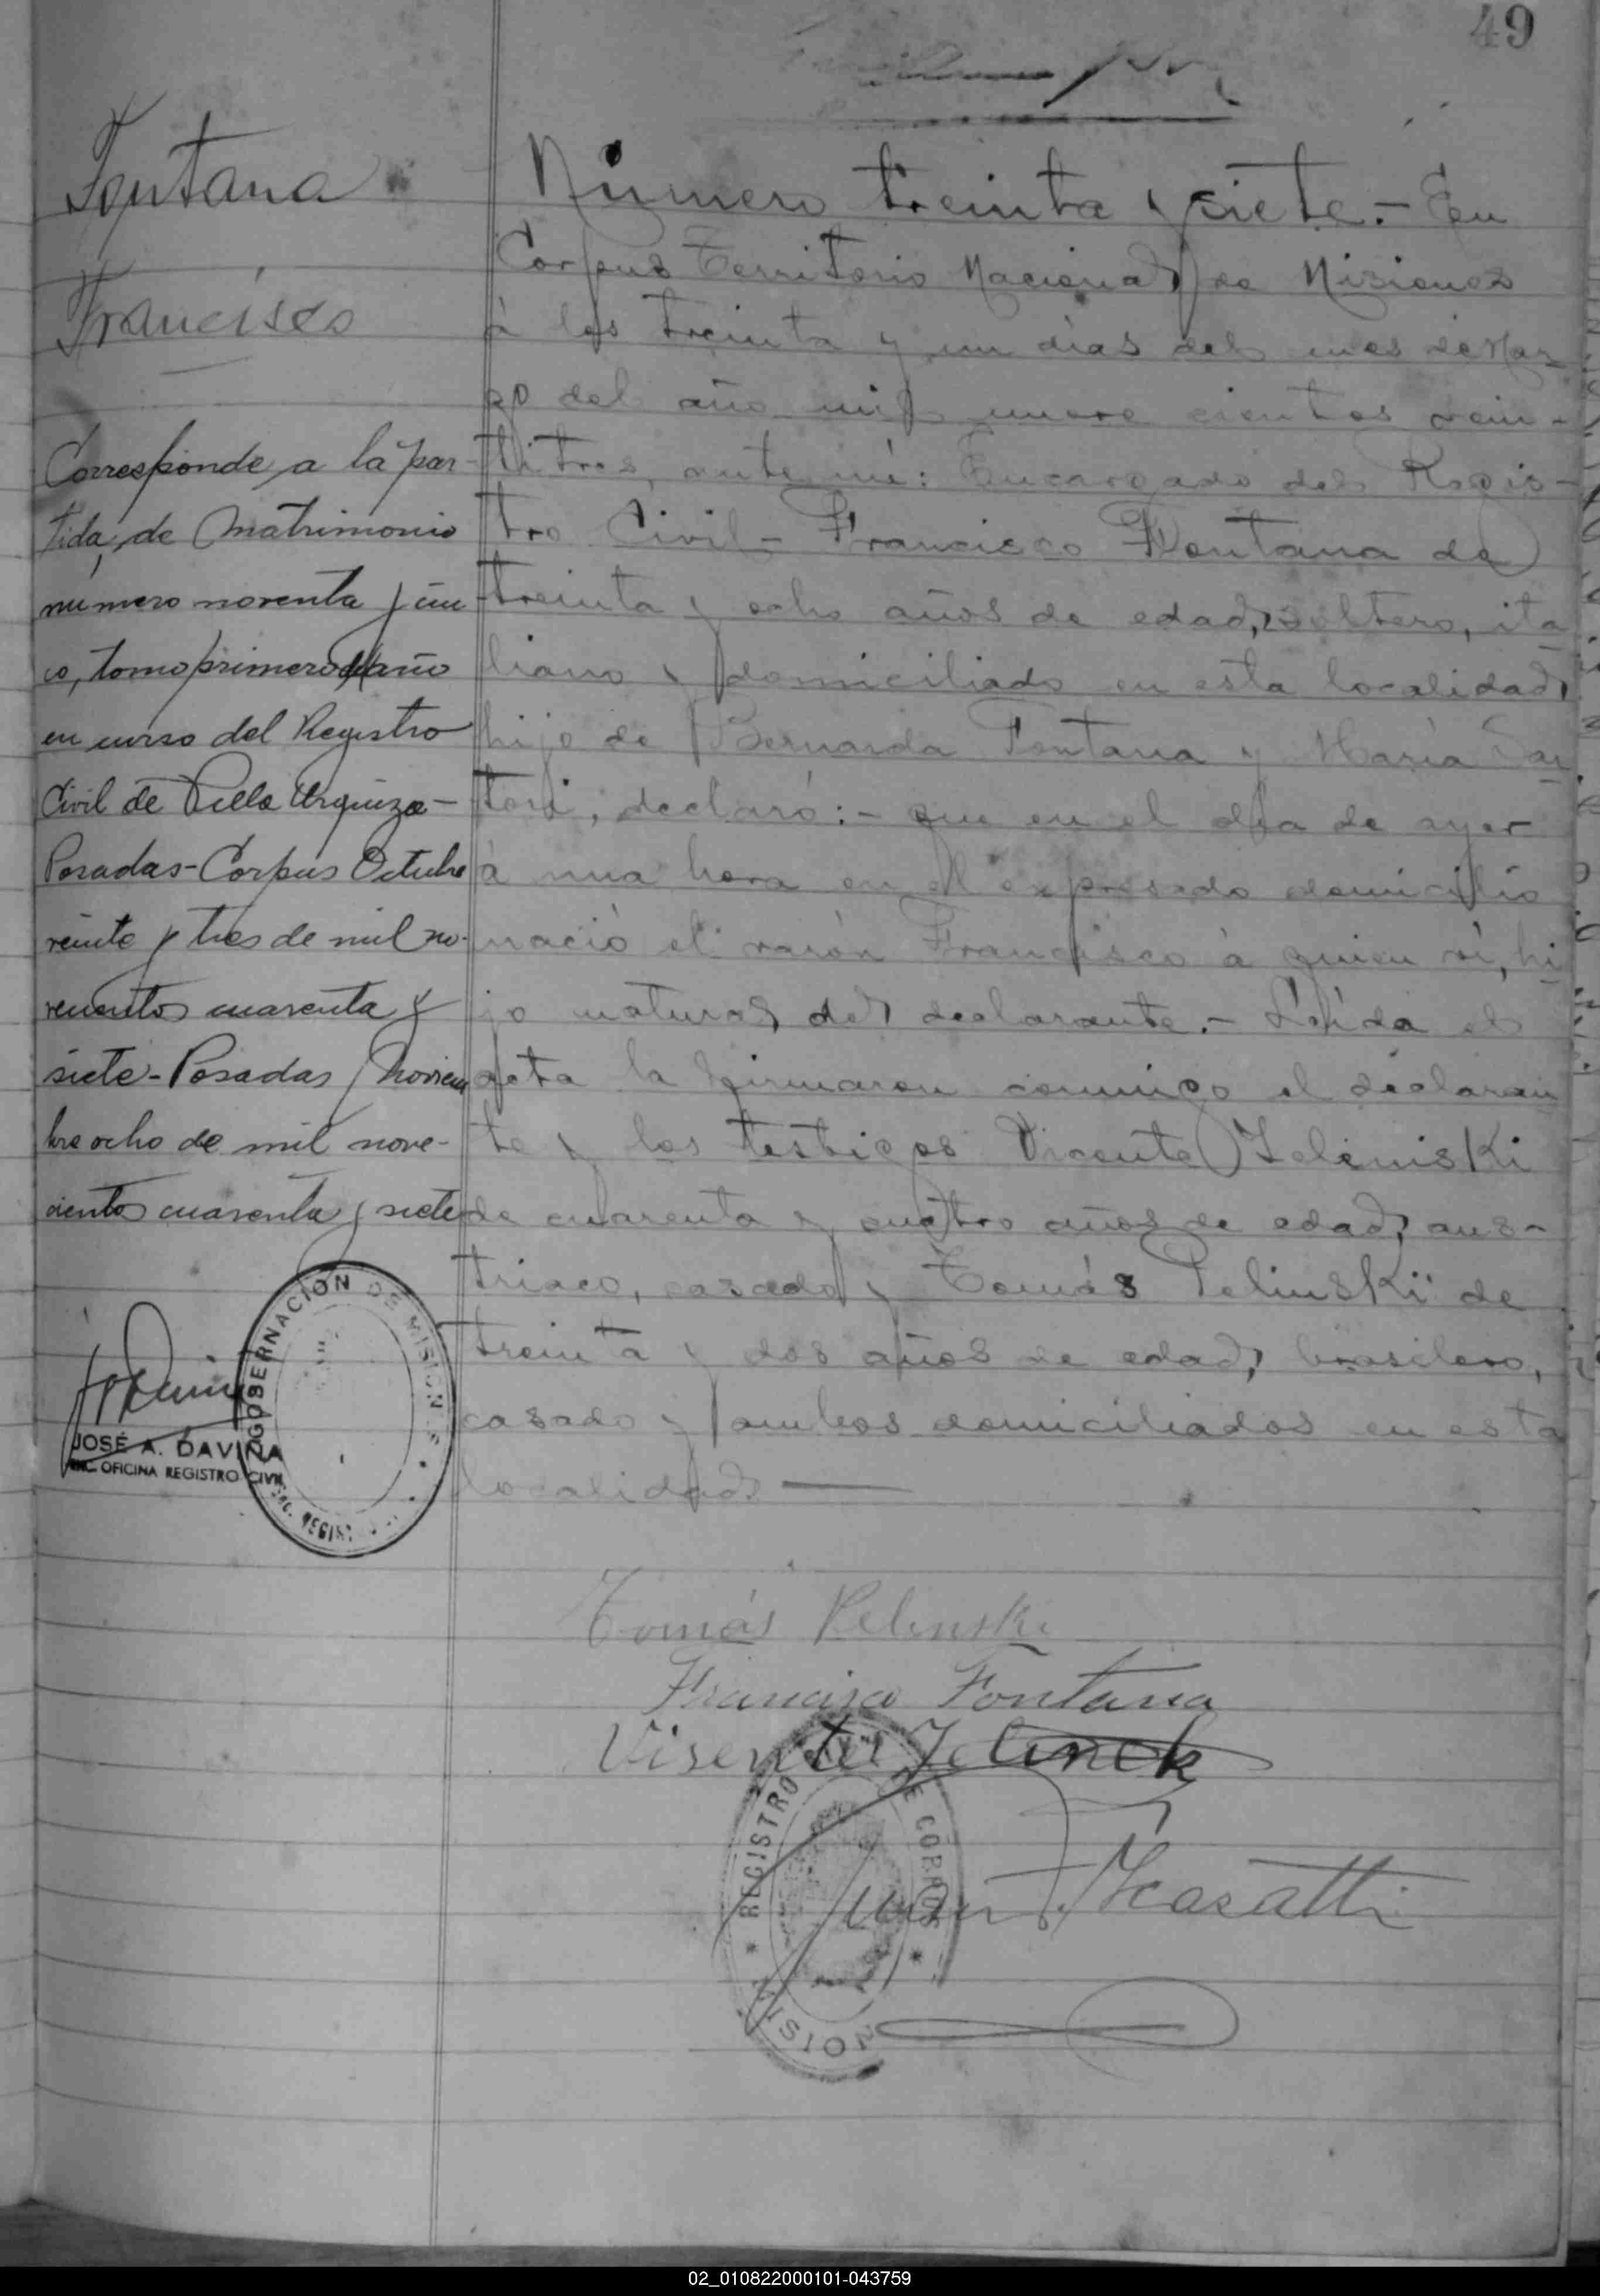 49
Fontana
Francisco
Corresponde a la par-
tida, de Matrimonio
número noventa y cin
co, tomo primero del año
en curso del Registro
Civil de Villa Urquiza-
Posadas-Corpus Octubre
veinte y tres de mil no-
vecientos cuarenta y
siete-Posadas, Noviem
bre ocho de mil nove-
cientos cuarenta y siete
GOBERNACION DE MISIONES
JOSÉ A. DAVIÑA
ENC. OFICINA REGISTRO CIVIL
Número treinta y siete.- En
Corpus Territorio Nacional de Misiones
à los treinta y un días del mes de Mar-
zo del año mil nueve cientos vein-
titres, ante mí: Encargado del Regis-
tro Civil- Francisco Fontana de
treinta y ocho años de edad, soltero, ita
liano y domiciliado en esta localidad,
hijo de Bernarda Fontana y María Sar
tori, declaró:- que en el día de ayer
à una hora en el expresado domicilio
nació el varón Francisco à quien ví, hi
jo natural del declarante.- Leída el
acta la firmaron conmigo el declaran
te y los testigos Vicente Zeleniski
de cuarenta y cuatro años de edad, aus-
triaco, casado y Tomás Pelinski de
treinta y dos años de edad, brasilero,
casado y ambos domiciliados en esta
localidad
Tomás Pelinski
Francisco Fontana
Visente Jelinek
REGISTRO CIVIL DE CORPUS
MISIONES
Juan J. Icasatti
02_010822000101-043759